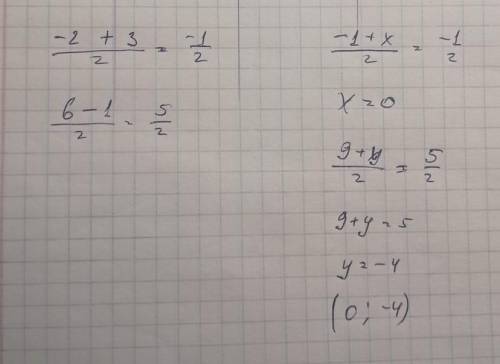 (-2 + 3)/2 = -1/2
(6 - 1)/2 = 5/2
(-1 + x)/2 = -1/2
x = 0
(9 + y)/2 = 5/2
9 + y = 5
y = -4
(0; -4)